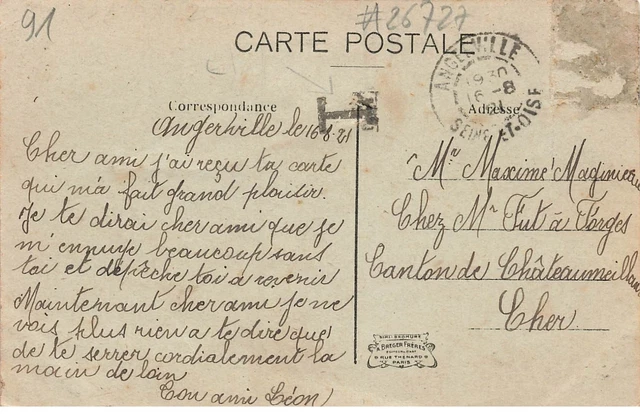 91
#26727
CARTE POSTALE
ANGERVILLE
19 30
16 -8
21
SEINE-ET-OISE
T
Correspondance
Adresse
Angerville le 16-8-21
Cher ami j'ai reçu ta carte
qui m'a fait grand plaisir.
Je te dirai cher ami que je
m'ennuye beaucoup sans
toi et dépêche toi a revenir
Maintenant cher ami je ne
vois plus rien a te dire que
de te serrer cordialement la
main de loin
Ton ami Léon
Mr Maxime Magnieau
Chez Mr Fut à Forges
Canton de Châteaumeillant
Cher
BREGER FRÈRES
9 RUE THÉNARD 9
PARIS